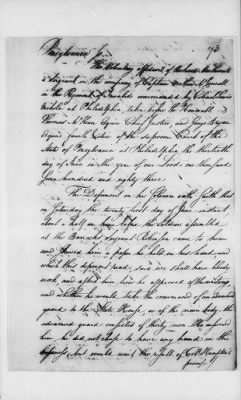 Pensylvania ss. 193
The Voluntary affidavit of Richard
a Sergeant in the company of Captain
in the Regiment of Invalids commanded by Colonel Lewis
Nichola at Philadelphia, taken before the Honorable
Thomas McKean Esquire Chief Justice, and George Bryan
Esquire fourth Justice of the supreme Court of the
State of Pensylvania at Philadelphia the thirtieth
day of June in the year of our Lord one thousand
seven hundred and eighty three.
The Deponent on his solemn oath saith, that
on Saturday the twenty first day of June instant,
about a half an hour before the soldiers assembled
at the Barracks Sergeant came to him
and shewed him a paper he held in his hand, and
which this deponent read, said we shall have bloody
work, and asked him if he approved of the writing,
and whether he would take the command of an advanced
guard to the State House, or of the main body; the
advanced guard consisted of thirty men. He informed
him, he did not chuse to have any hand in the
business, but would wait the of Colo. Humpton's